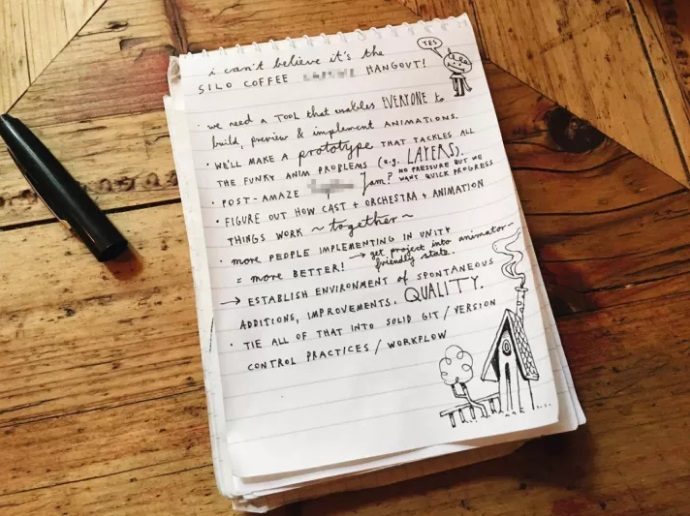 i can't believe it's the
SILO COFFEE HANGOUT!
YES
• we need a TOOL that enables EVERYONE to
build, preview & implement animations.
• WE'LL MAKE A prototype THAT TACKLES ALL
THE FUNKY ANIM PROBLEMS (e.g. LAYERS).
• POST-AMAZE Jam? NO PRESSURE BUT WE
WANT QUICK PROGRESS
• FIGURE OUT HOW CAST + ORCHESTRA + ANIMATION
THINGS WORK ~together~
• more PEOPLE IMPLEMENTING IN UNITY
= more BETTER! → get project into animator-
friendly state.
→ ESTABLISH ENVIRONMENT of SPONTANEOUS
ADDITIONS, IMPROVEMENTS. QUALITY.
• TIE ALL OF THAT INTO SOLID GIT/VERSION
CONTROL PRACTICES/WORKFLOW